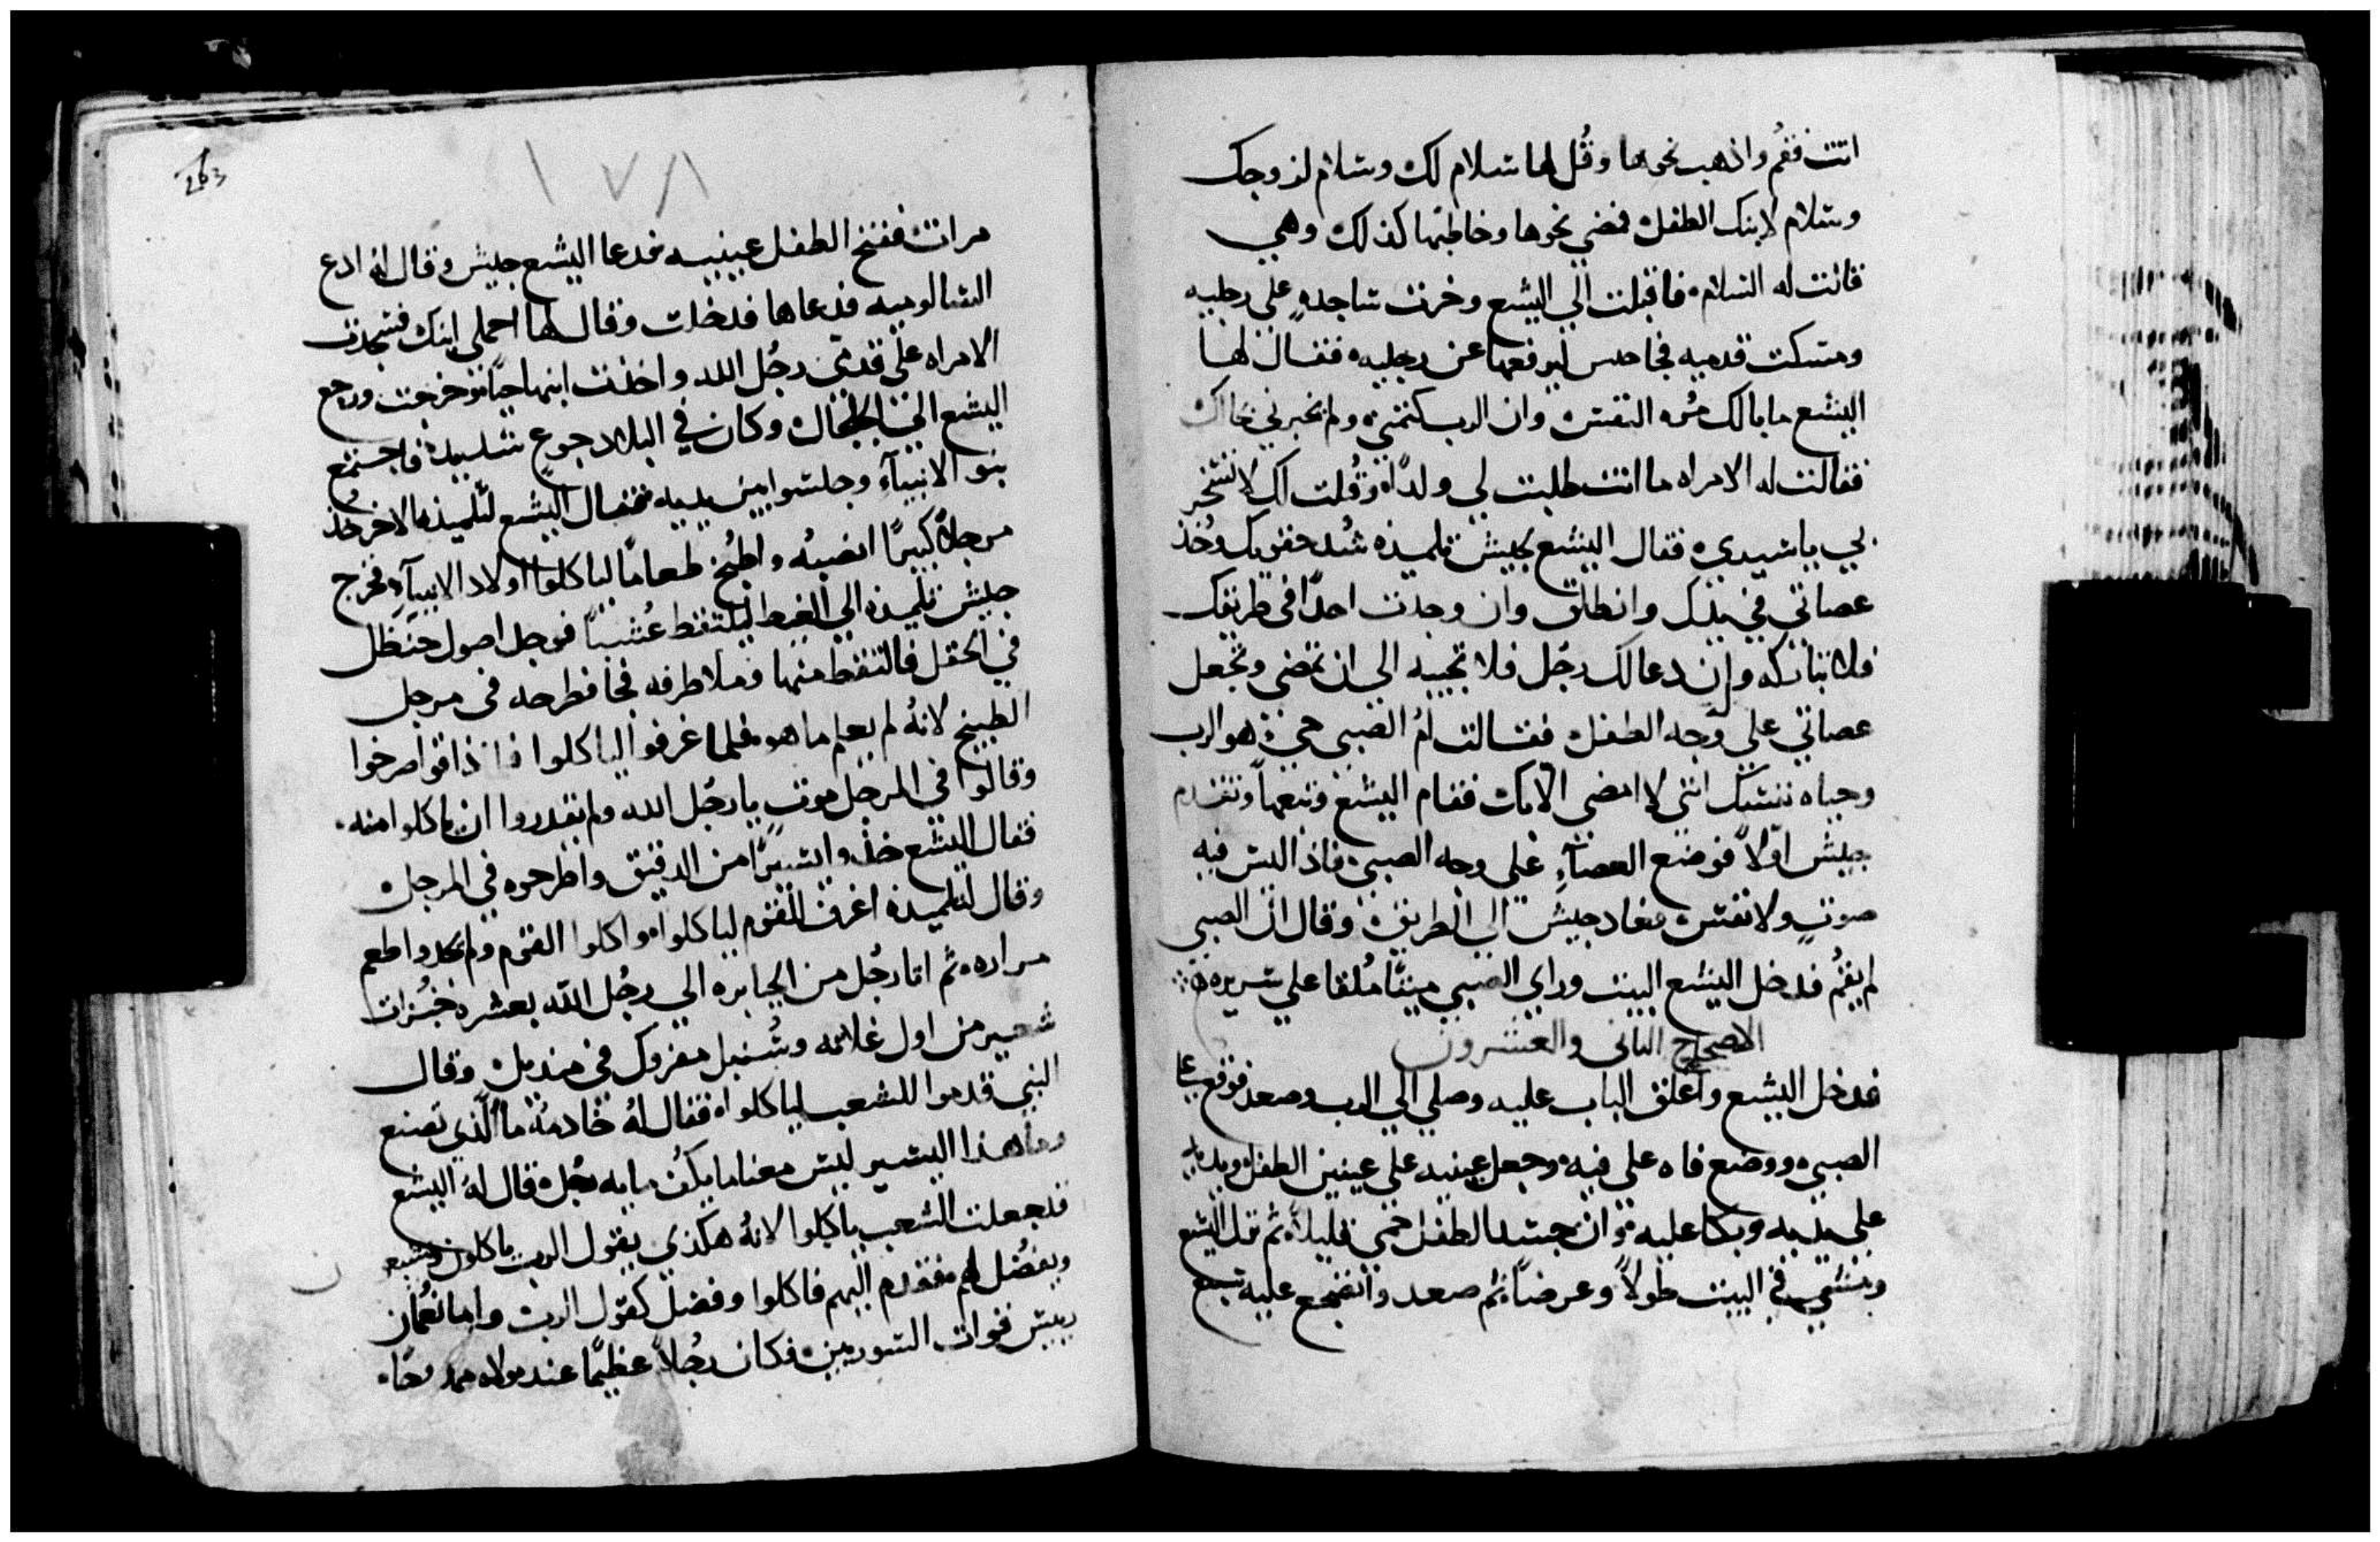 اتت فقم واذهب نحوها وقُل لها سلام لك وسلام لزوجك
وسلام لابنك الطفل فمضي نحوها وخاطبها كذلك وهي
قالت له السلام فاقبلت الي اليشع وخرت ساجدهٍ علي رجليه
ومسكت قدميه فجا ليرفعها عن رجليه فقال لها
اليشع ما بالك مُره النفس وان الرب كتمني ولم يخبرني
فقالت له الامراه ما انت طلبت لي ولدًا وقُلت لك لا تسخر
بي يا سيدي فقال اليشع لجيش تلميذه شُد حقويك وخُذ
عصاتي في يدك وانطلق وان وجدت احدًا في طريقك
فلا تباركه وان دعا لك رجُل فلا تجيبه الي ان تمضي وتجعل
عصاتي علي وجه الطفل فقالت امُ الصبي حي هو الرب
وحياه نفسك انني لا امضي الا بك فقام اليشع وتبعها وتقدم
جيش اوّلاً فوضع العصآهِ علي وجه الصبي فاذا ليس فيه
صوتٍ ولا نفس فعاد جيش الي الطريق وقال ان الصبي
لم يقُم فدخل اليشع البيت وراي الصبي ميتًا مُلقا علي سريره
الاصحاح الثاني والعشرون
فدخل اليشع واغلق الباب عليه وصلي الي الرب وصعد فوقع علي
الصبي ووضع فاه علي فيه وجعل عينيه علي عينين الطفل ويديه
علي يديه وبكا عليه وان جسد الطفل حمي قليلاً ثم نزل اليشع
ومشي في البيت طولاً وعرضاً ثم صعد وانضجع عليه سبع
263
١٧٨
مرات ففتح الطفل عينيه فدعا اليشع جيش وقال له ادع
الشالوميه فدعاها فدخلت وقال لها احملي ابنك فسجدت
الامراه علي قدمي رجُل الله واخذت ابنها حيًا وخرجت ورجع
اليشع الي الجلجال وكان في البلاد جوعٍ شديد فاجتمع
بنو الانبيآءِ وجلسوا بين يديه فقال اليشع لتلميذه الاخر خُذ
مرجلاً كبيرًا انصبهُ واطبُخ طعامًا لياكلوا اولاد الانبيآءِ فخرج
جيش تلميذه الي الغيط ليلتقط عُشبًا فوجد اصول حنظل
في الحقل فالتقط منها وملا طرفه فجا فطرحه في مرجل
الطبيخ لانهُ لم يعلم ما هو فلما غرفوا لياكلوا فاذ ذاقوا صرخوا
وقالوا في المرجل موت يا رجُل الله ولم يقدروا ان ياكلوا منه
فقال اليشع خذوا يسيرًا من الدقيق واطرحوه في المرجل
وقال لتلميذه اغرف للقوم لياكلوا واكلوا القوم ولم يجدوا طعم
مراره ثم اتا رجُل من الجبابره الي رجُل الله بعشره خبُزات
شعير من اول غلاته وسُنبل مفروك في منديل وقال
النبي قدموا للشعب لياكلوا فقال لهُ خادمهُ ما الذي تصنع
وماهذا اليسير ليس معنا ما يكفُ مايه رجُل قال لهُ اليشع
فدع الشعب ياكلوا لانهُ هكذي يقول الرب ياكلون ويشبعوا
ويفضُل لهم فقدم اليهم فاكلوا وفضل كقول الرب واما نعُمان
رييس قوات السوريين فكان رجُلاً عظيمًا عند مولاه